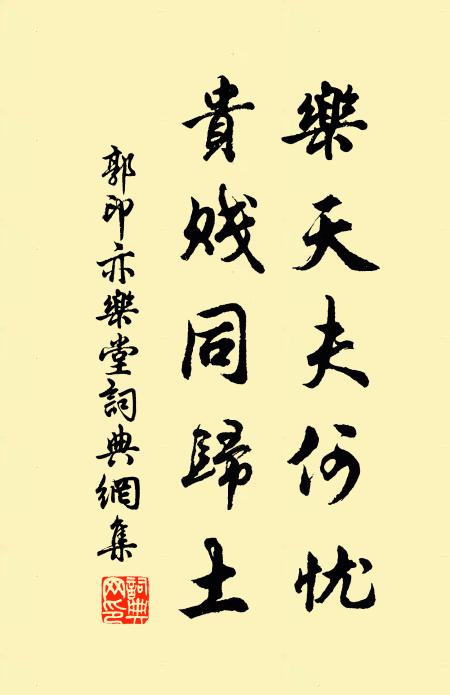 樂天夫何忧
貴賤同歸土
郭印亦樂堂詞典網集
詞典網印